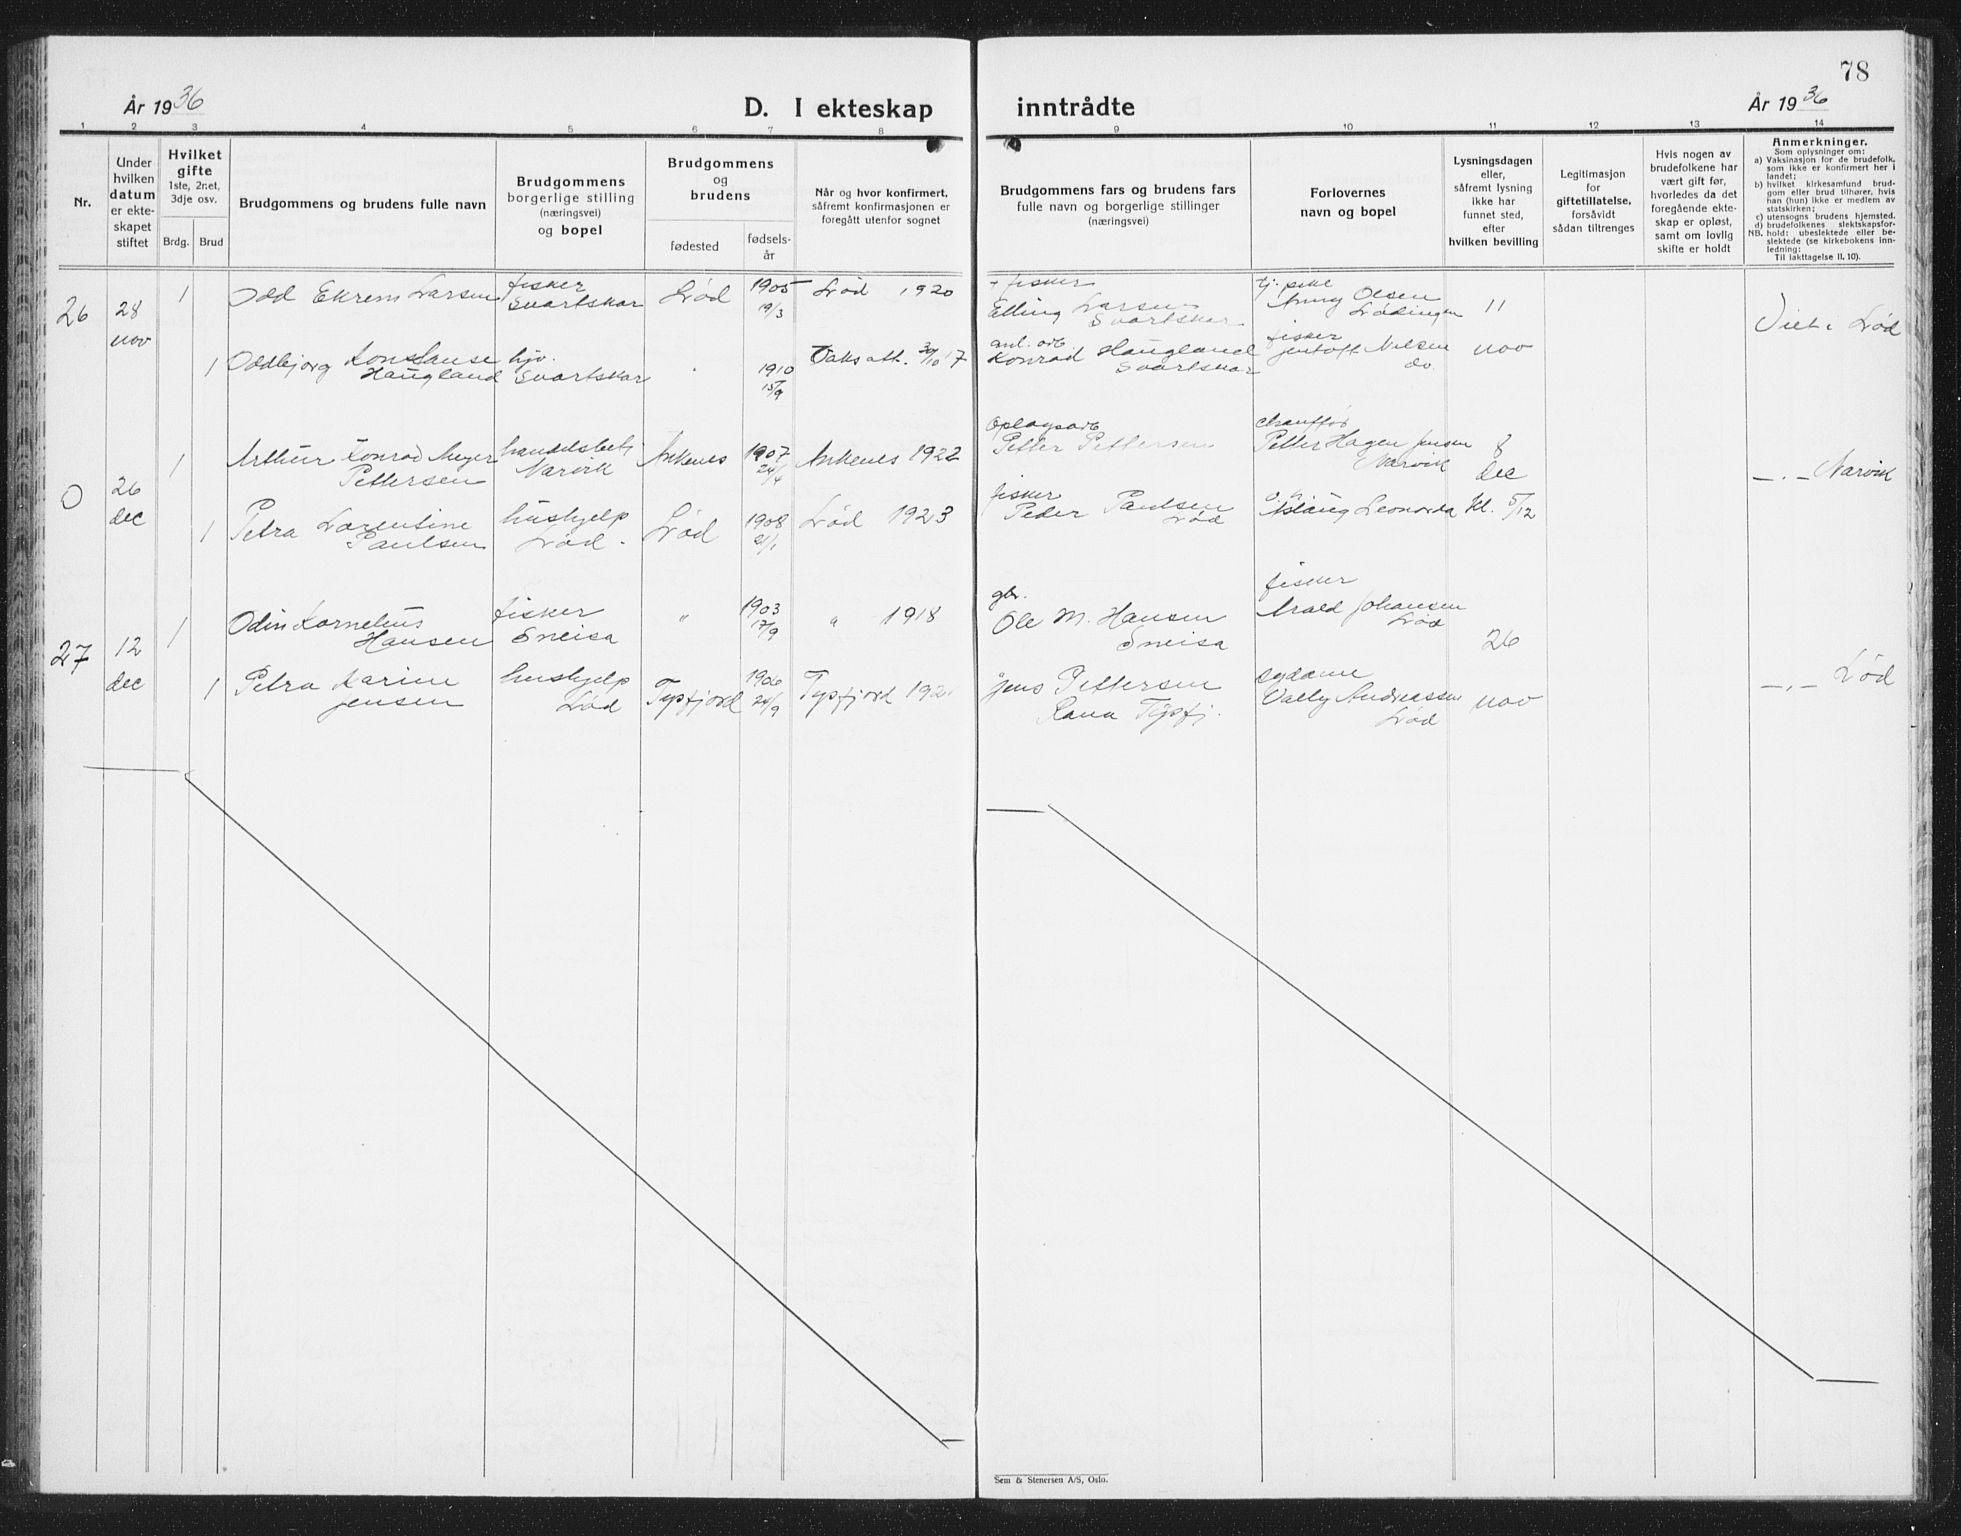 78
År 1936
D. I ekteskap inntrådte
År 1936
1 2 3 4 5 6 7 8 9 10 11 12 13 14
Nr.
Under hvilken datum er ekteskapet stiftet
Hvilket gifte
1ste, 2net, 3dje osv.
Brdg. Brud
Brudgommens og brudens fulle navn
Brudgommens
borgerlige stilling
(næringsvei)
og bopel
Brudgommens
og
brudens
fødested
fødsels-
år
Når og hvor konfirmert,
såfremt konfirmasjonen er
foregått utenfor sognet
Brudgommens fars og brudens fars
fulle navn og borgerlige stillinger
(næringsvei)
Forlovernes
navn og bopel
Lysningsdagen
eller,
såfremt lysning
ikke har
funnet sted,
efter
hvilken bevilling
Legitimasjon
for
giftetillatelse,
forsåvidt
sådan tiltrenges
Hvis nogen av
brudefolkene har
vært gift før,
hvorledes da det
foregående ekte-
skap er opløst,
samt om lovlig
skifte er holdt
Anmerkninger.
Som oplysninger om:
a) Vaksinasjon for de brudefolk,
som ikke er konfirmert her i
landet;
b) hvilket kirkesamfund brud-
gom eller brud tilhører, hvis
han (hun) ikke er medlem av
statskirken;
c) utensogns brudens hjemsted.
d) brudefolkenes slektskapsfor-
hold: ubeslektede eller be-
NB. slektede (se kirkebokens inn-
ledning:
Til iakttagelse II. 10).
26
28
nov
1
Odd Ekrem Larsen
fisker
Svartskar
Lød
1905
19/3
Lød 1920
+ fisker
Elling Larsen
Svartskar
Olsen
Lødingen
11
nov
Viet i Lød
1
Oddbjørg Konstanse
Haugland
hjv.
Svartskar
"
1910
15/9
Vaksatt. 30/10 17
anl. arb
Konrad Haugland
Svartskar
fisker
Jentoft Nilsen
do.
0
26
dec
1
Arthur Konrad Meyer
Pettersen
handelsbetj
Narvik
Ankenes
1907
24/4
Ankenes 1922
Oplagsarb
Petter Pettersen
chauffør
Petter Hagen Jensen
Narvik
8
dec
— " — Narvik
1
Petra Lorentine
Paulsen
hushjelp
Lød.
Lød
1908
21/1
Lød 1923
fisker
Peder Paulsen
Lød
Aslaug Leonarda
Kl. 5/12
27
12
dec
1
Odin Kornelius
Hansen
fisker
Sneisa
"
1903
17/9
" 1918
gbr.
Ole M. Hansen
Sneisa
fisker
Arald Johansen
Lød
26
nov
— " — Lød
1
Petra Karine
Jensen
hushjelp
Lød
Tysfjord
1906
24/9
Tysfjord
Jens Pettersen
Rana Tysfj.
sydame
Vally Andreassen
Lød
Sem & Stenersen A/S, Oslo.